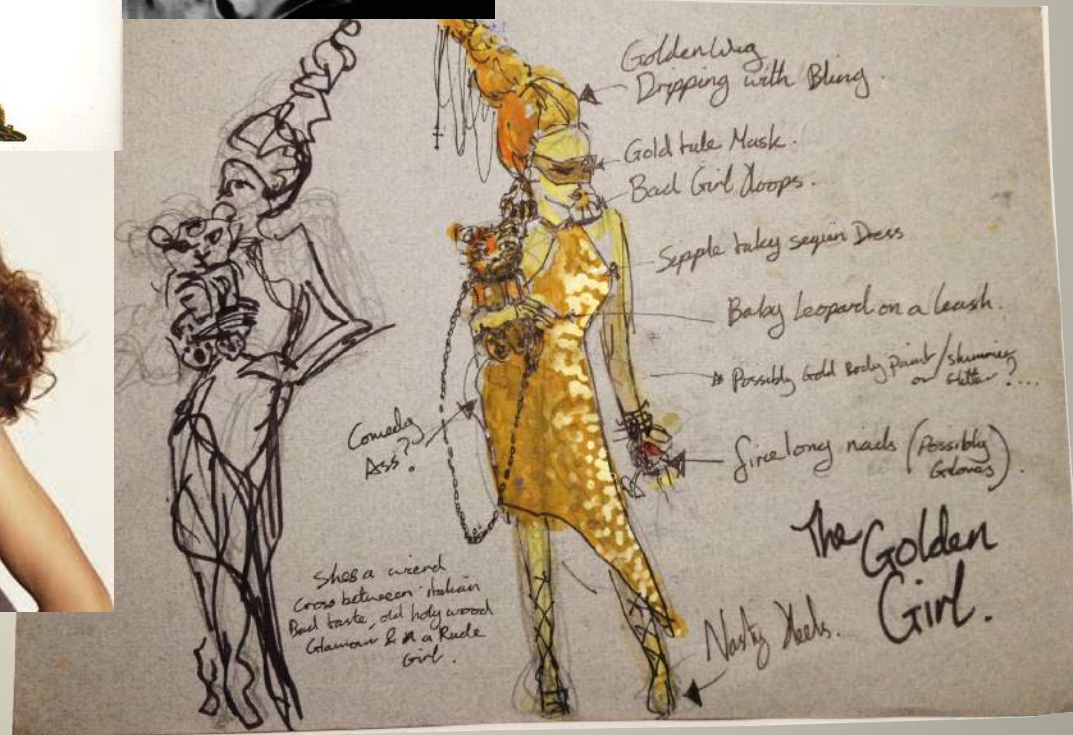 Golden Wig
Dripping with Bling.
Gold tule Mask.
Bad Girl Hoops.
Sipple taky sequin Dress
Baby Leopard on a leash.
Possibly Gold Body Paint / shimmer
or Glitter?....
long nails (Possibly
Gloves).
Comedy
Ass?
The Golden
Girl.
Shes a wierd
cross between italian
Bad taste, old holy wood
Glamour & a Rude
Girl.
Nasty Heels.